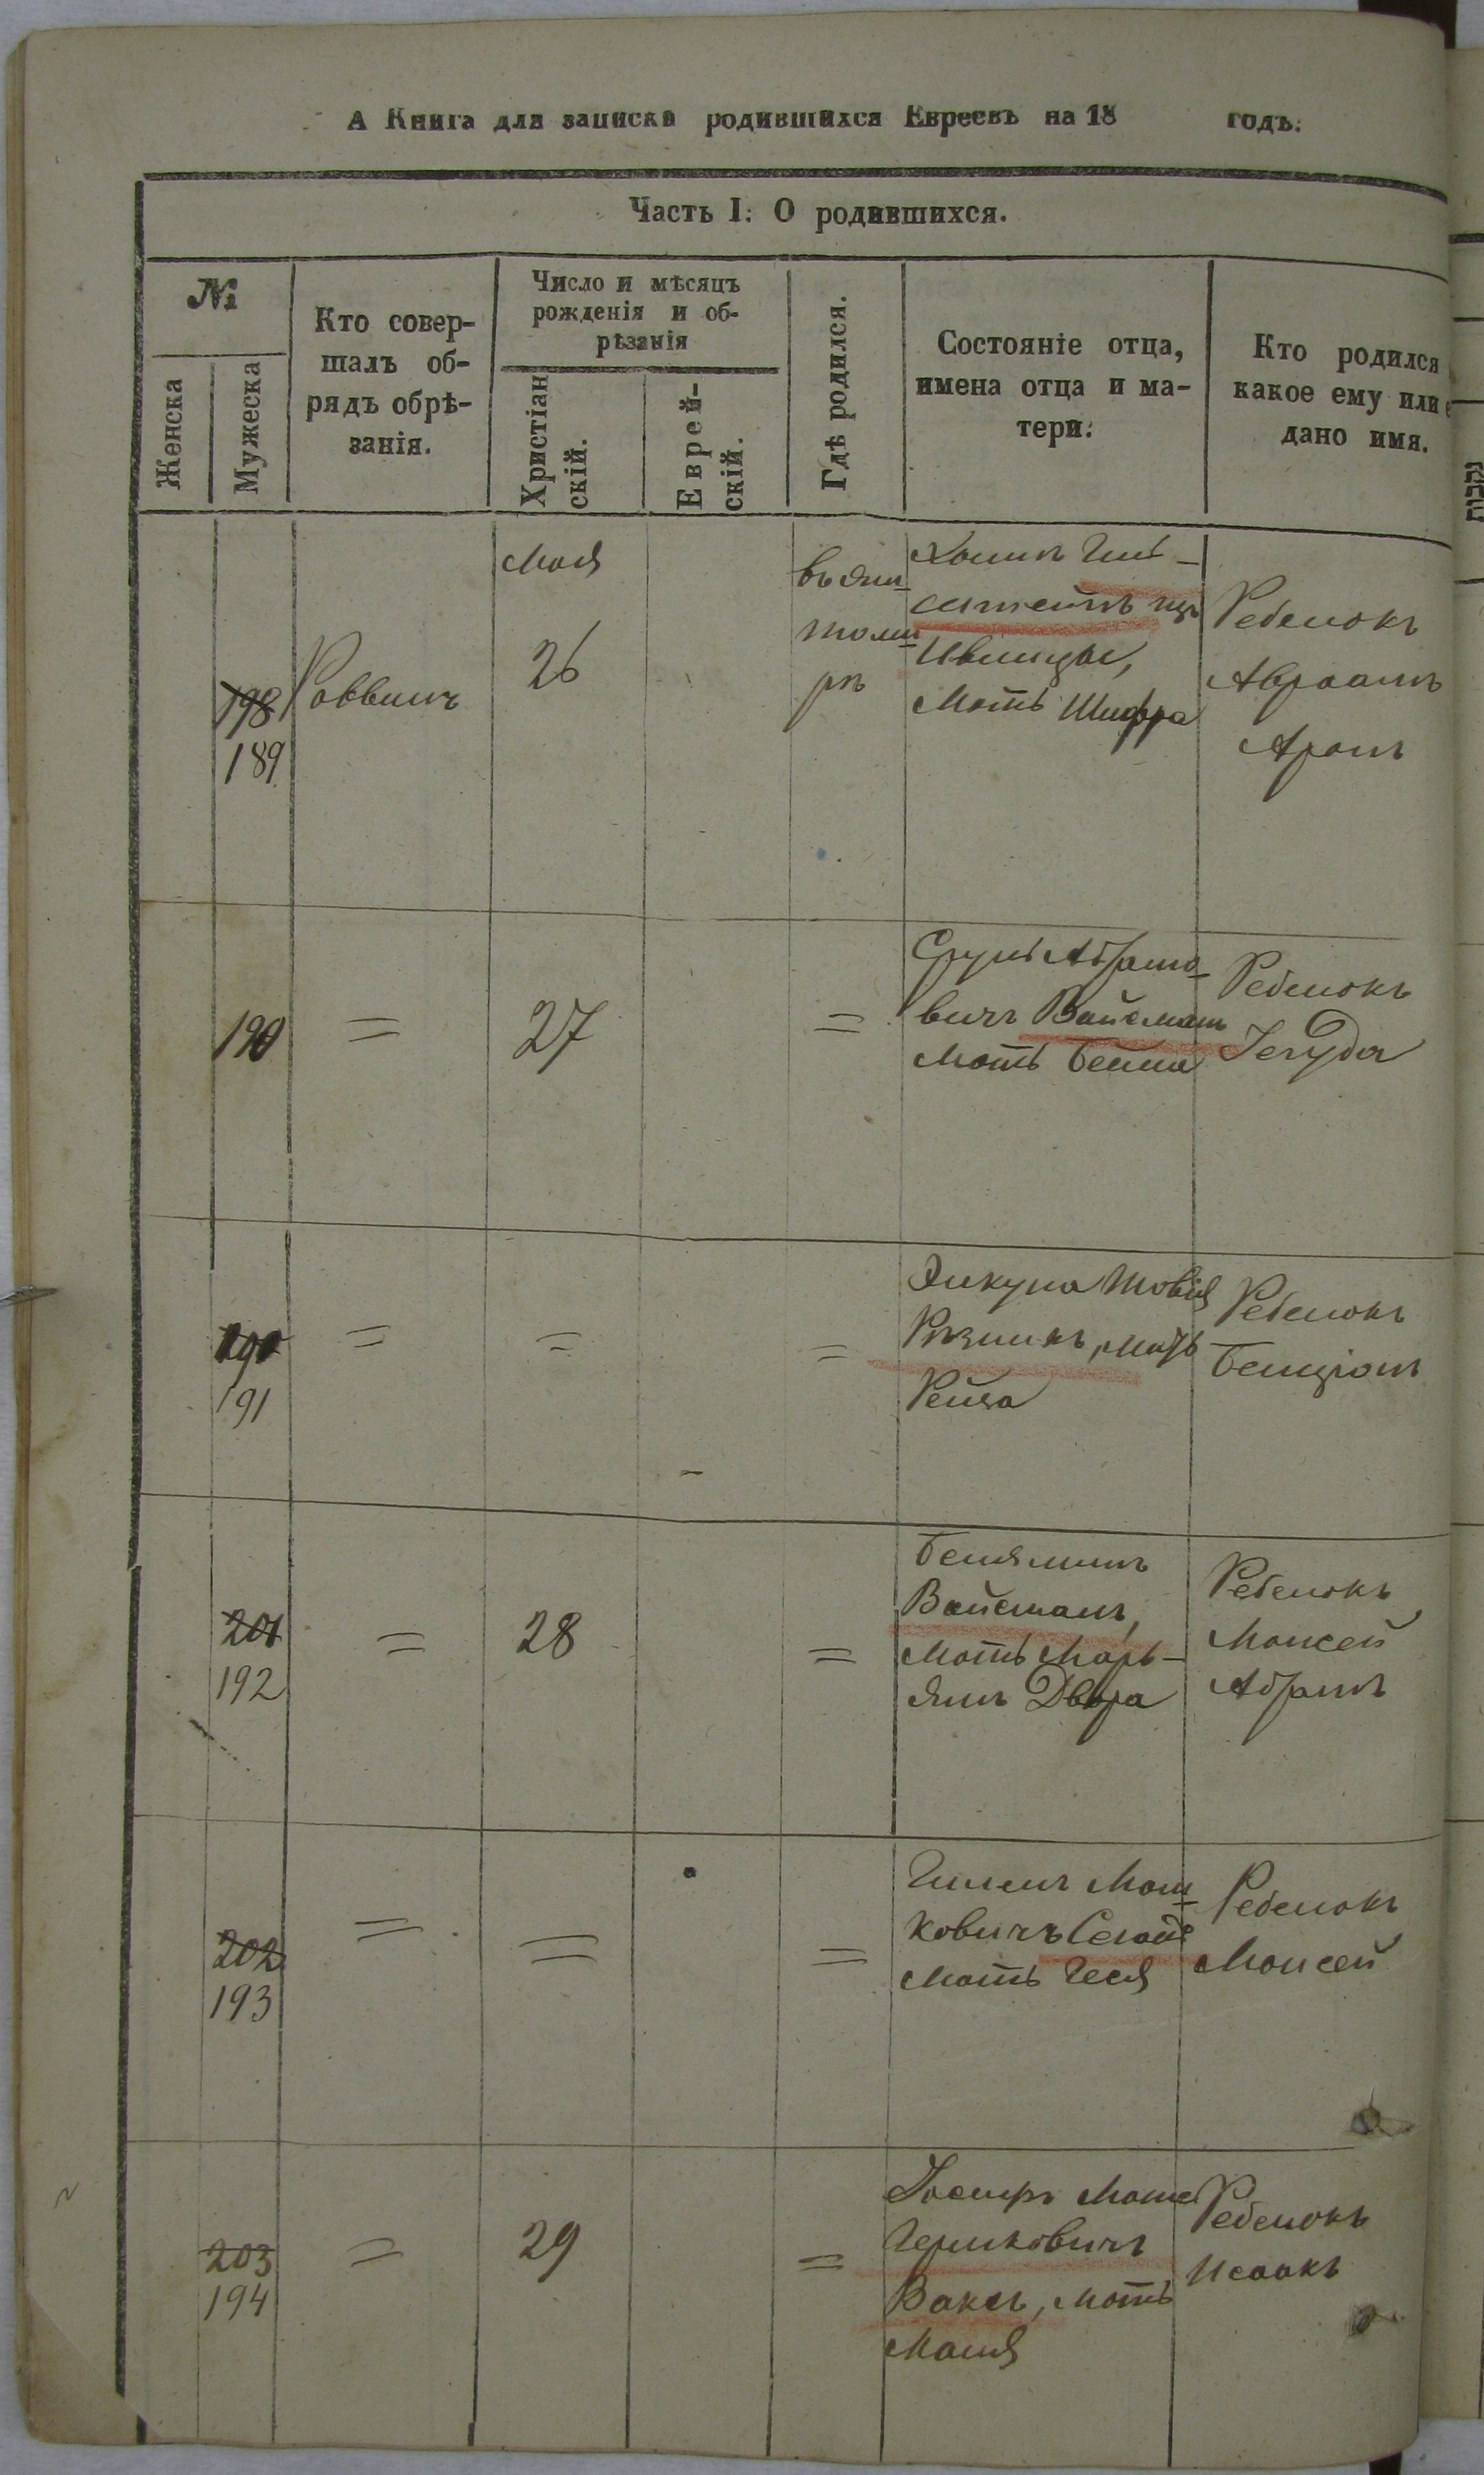 А Книга для записки родившихся Евреевъ на 18 годъ.
Часть I. О родившихся.
№
Женска
Мужеска
Кто совер-
шалъ об-
рядъ обрѣ-
занія.
Число и мѣсяцъ
рожденія и об-
рѣзанія
Христіан
скій.
Еврей-
скій.
Гдѣ родился.
Состояніе отца,
имена отца и ма-
тери.
Кто родился
какое ему или е
дано имя.
198
189
Раввинъ
Мая
26
въ Жи-
томи-
рѣ
Хаимъ
Ивницы,
Мать Шифра
Ребенокъ
Авраамъ
Аронъ
190
=
27
=
Сруль Абрамо-
вичъ Вайсманъ
Мать Бейла
Ребенокъ
Іегуда
191
=
=
=
Товія
Рѣзникъ, мать
Рейза
Ребенокъ
Бенціонъ
201
192
=
28
=
Беняминъ
Вайсманъ,
Мать Марь-
ямъ Двора
Ребенокъ
Моисей
Абрамъ
202
193
=
=
=
Мош-
ковичъ
Мать Геся
Ребенокъ
Моисей
203
194
=
29
=
Іосифъ
Гершковичъ
Ваксъ, мать
Маня
Ребенокъ
Исаакъ
נקבות